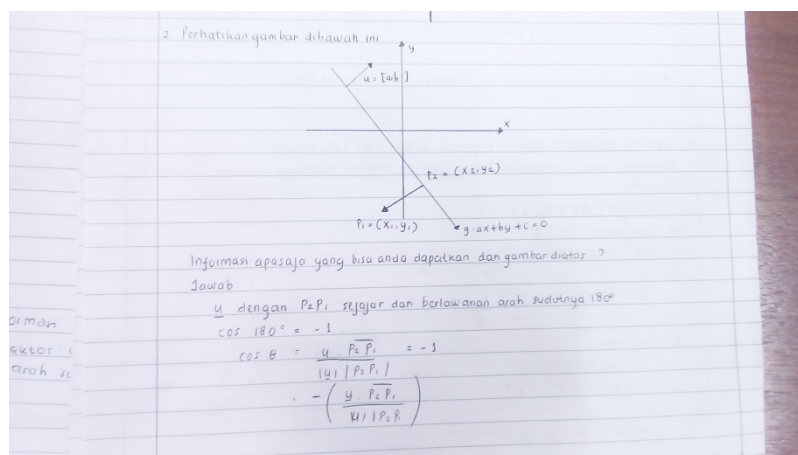 2 Perhatikan gambar dibawah ini
y
u = [a,b]
x
P2 = (x2, y2)
P1 = (x1, y1)
g: ax + by + c = 0
Informasi apasaja yang bisa anda dapatkan dari gambar diatas ?
Jawab
u dengan P2P1 sejajar dan berlawanan arah sudutnya 180°
cos 180° = -1
cos θ = u . P2 P1 / |u| |P2 P1| = -1
- ( u . P2 P1 / |u| |P2 P1 )
orman
ektor
arah